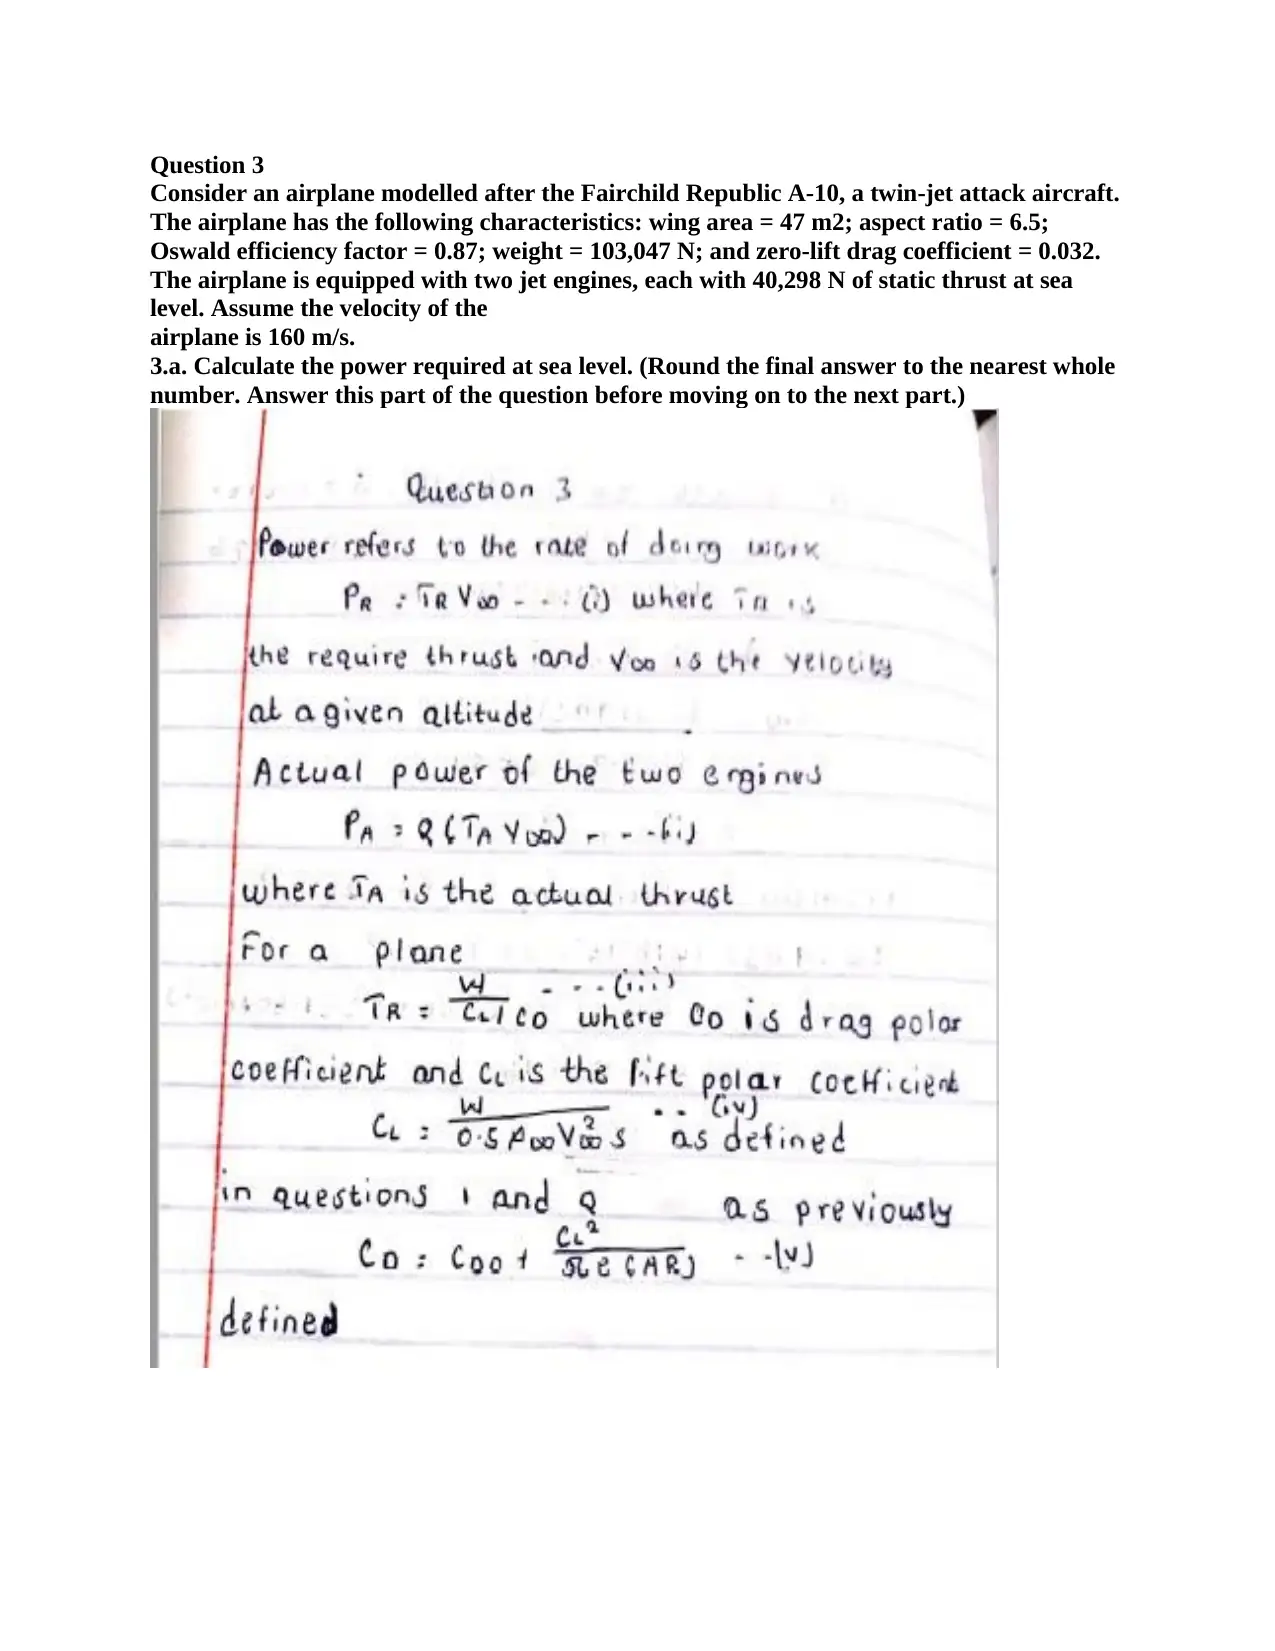 Question 3
Consider an airplane modelled after the Fairchild Republic A-10, a twin-jet attack aircraft.
The airplane has the following characteristics: wing area = 47 m2; aspect ratio = 6.5;
Oswald efficiency factor = 0.87; weight = 103,047 N; and zero-lift drag coefficient = 0.032.
The airplane is equipped with two jet engines, each with 40,298 N of static thrust at sea
level. Assume the velocity of the
airplane is 160 m/s.
3.a. Calculate the power required at sea level. (Round the final answer to the nearest whole
number. Answer this part of the question before moving on to the next part.)
Question 3
Power refers to the rate of doing work
PR = TR V∞ - - - (i) where TR is
the require thrust and V∞ is the velocity
at a given altitude
Actual power of the two engines
PA = 2 (TA V∞) - - - (ii)
where TA is the actual thrust
For a plane
TR = W / CL/CD - - - (iii) where CD is drag polar
coefficient and CL is the lift polar coefficient
CL = W / 0.5 ρ∞ V∞² S - - (iv) as defined
in questions 1 and 2 as previously
CD = CD0 + CL² / π e (AR) - - (v)
defined